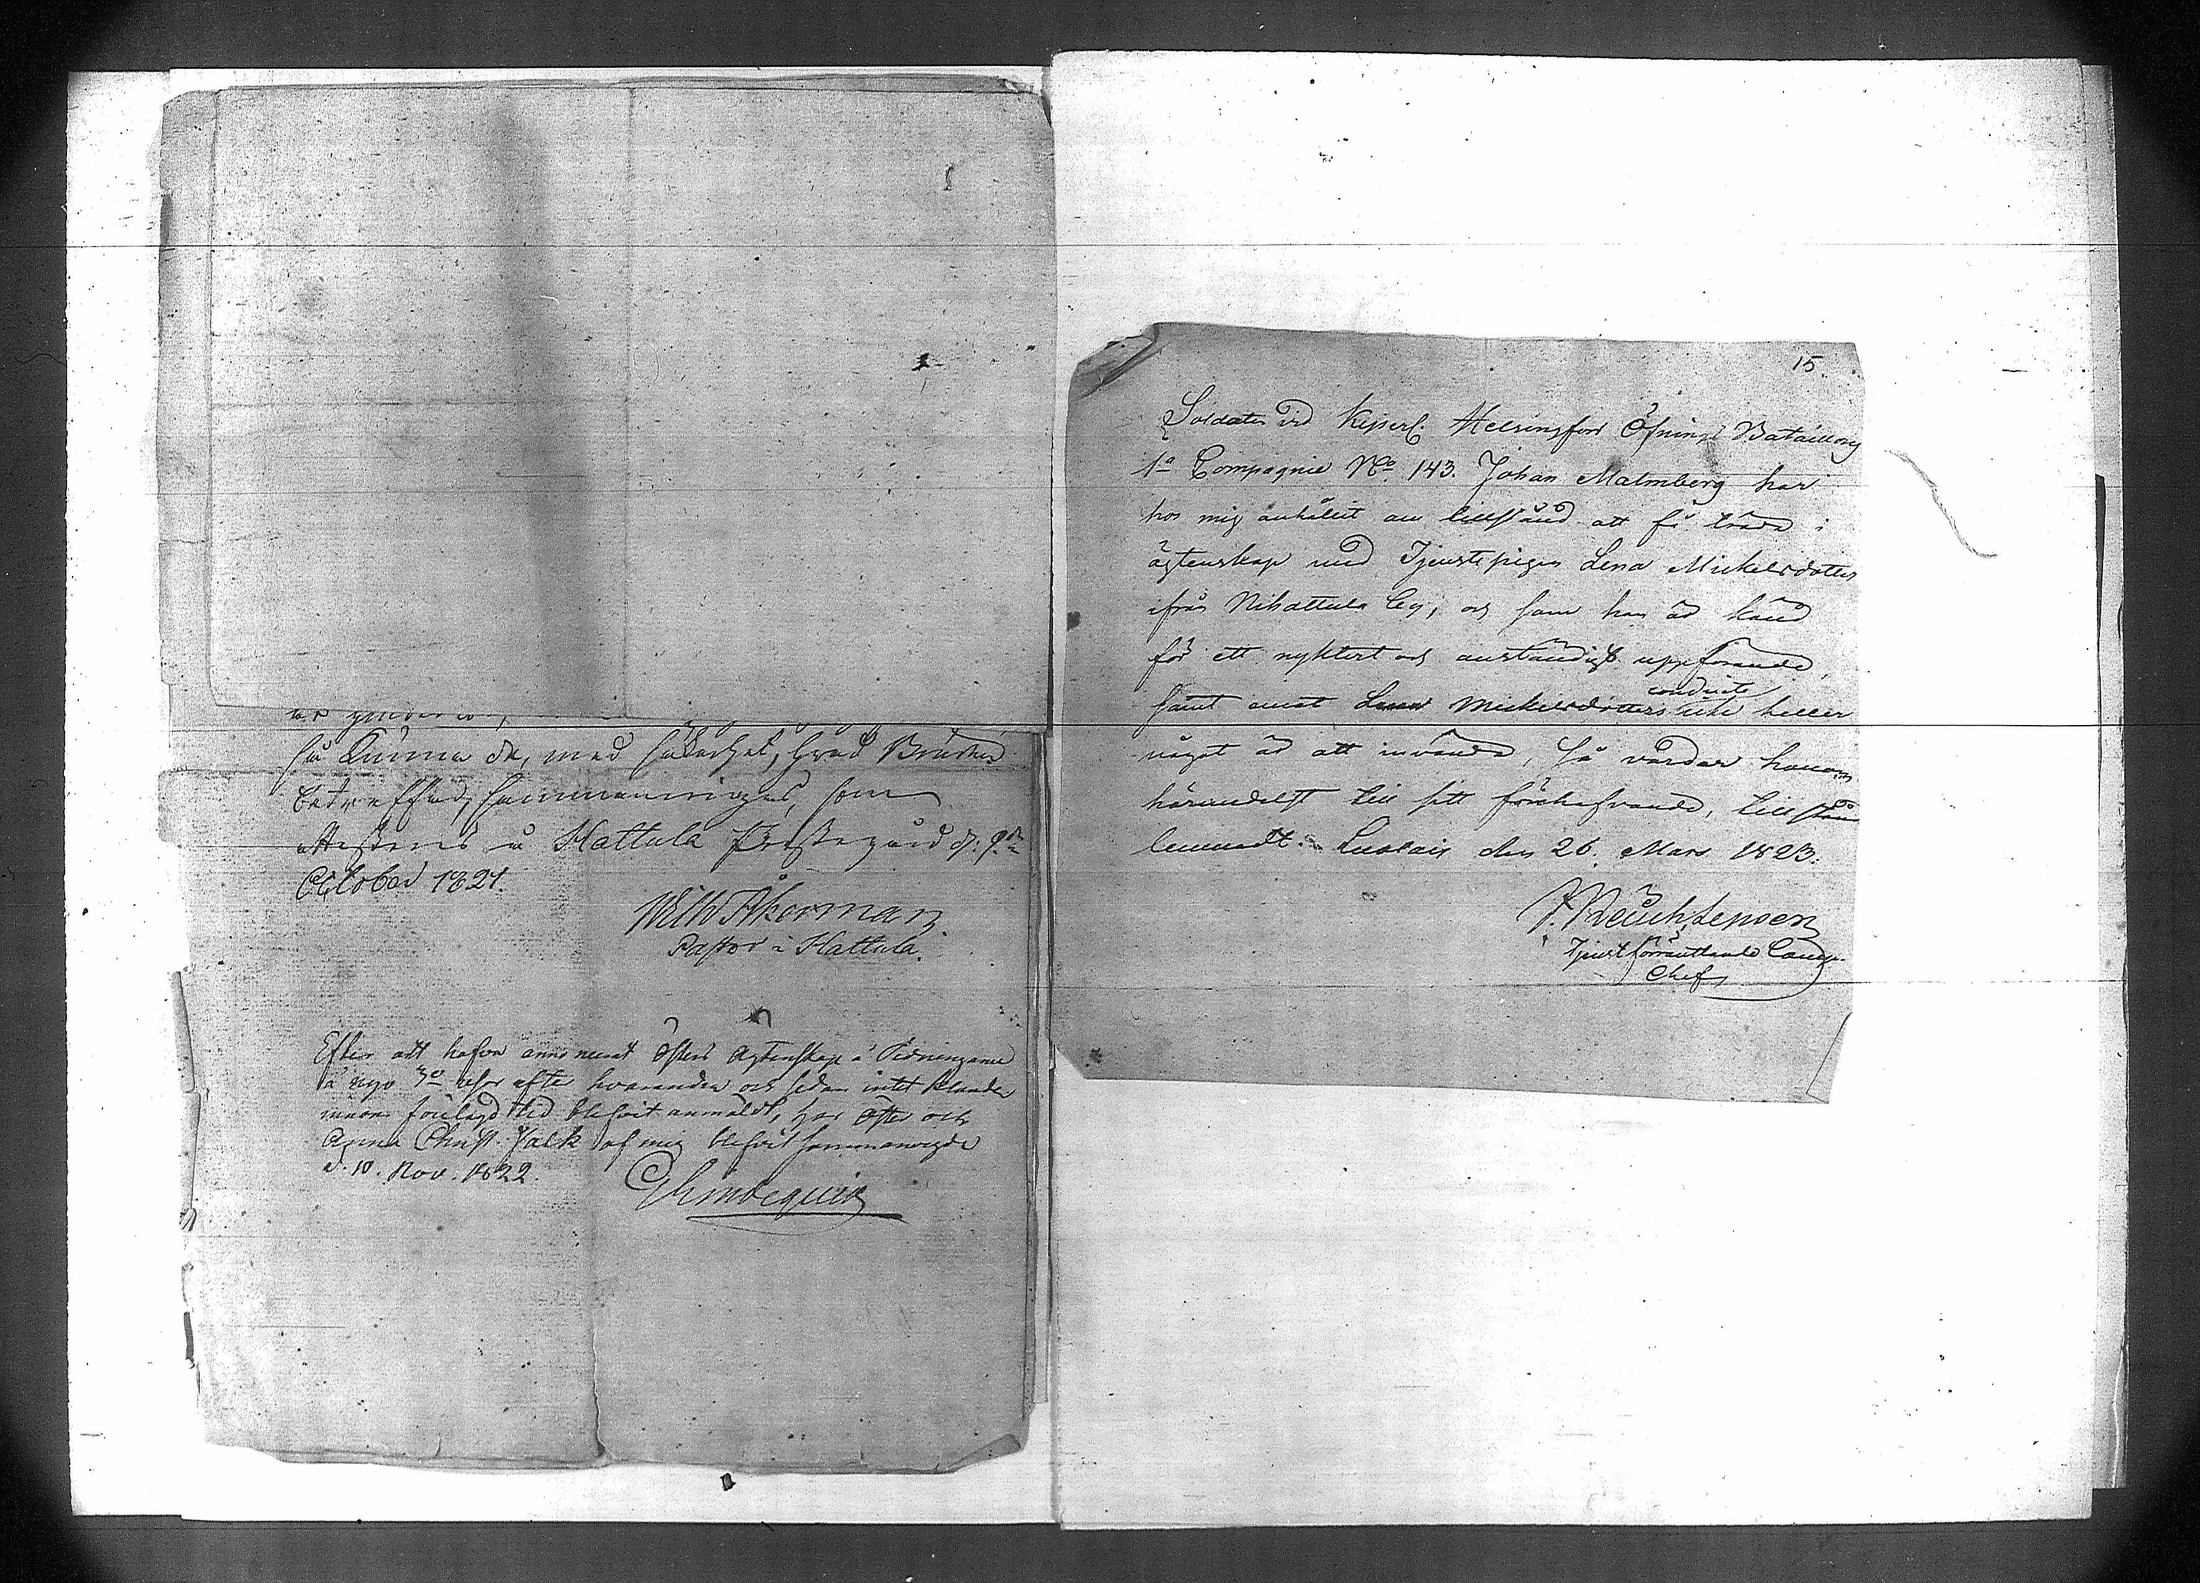 så kunna de, med säkerhet, hvad Bruden
beträffad, sammanvigas, som
attesteras å Hattula Prestegård d: 9de
October 1821.
Wilh Åkerman
Pastor i Hattula.
Efter att hafva annonserat Östers Ägtenskap i Tidningarne
å nyo 3e resor efter hvarandra och sedan intet klander
inom förelagd tid blifvit anmäldt, har Öster och
Anna Christ. Falk af mig blifvit sammanvigde
d. 10. Nov. 1822.
15.
Soldaten vid Kejserl. Helsingfors Öfnings Bataillon
1a Compagnie No. 143. Johan Malmberg har
hos mig anhållit om tillstånd att få träda i
ägtenskap med Tjenstepigan Lena Mickelsdotter
ifrån Nihattula by, och som han är känd
för ett nyktert och anständigt uppförande,
samt emot Lenas Mickelsdotters conduite icke heller
något är att invända, så varder honom
härmedelst till sitt förehafvande, tillstånd
lemnadt. den 26. Mars 1823.
Tjenstförrättande Comp.
Chef